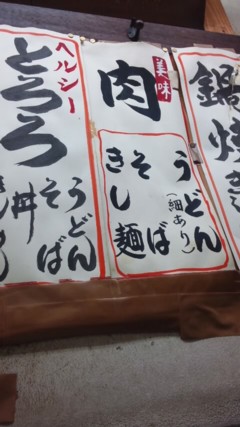 鍋焼
美味
肉
うどん
(細あり)
そば
きし麺
ヘルシー
とろろ
うどん
そば
丼